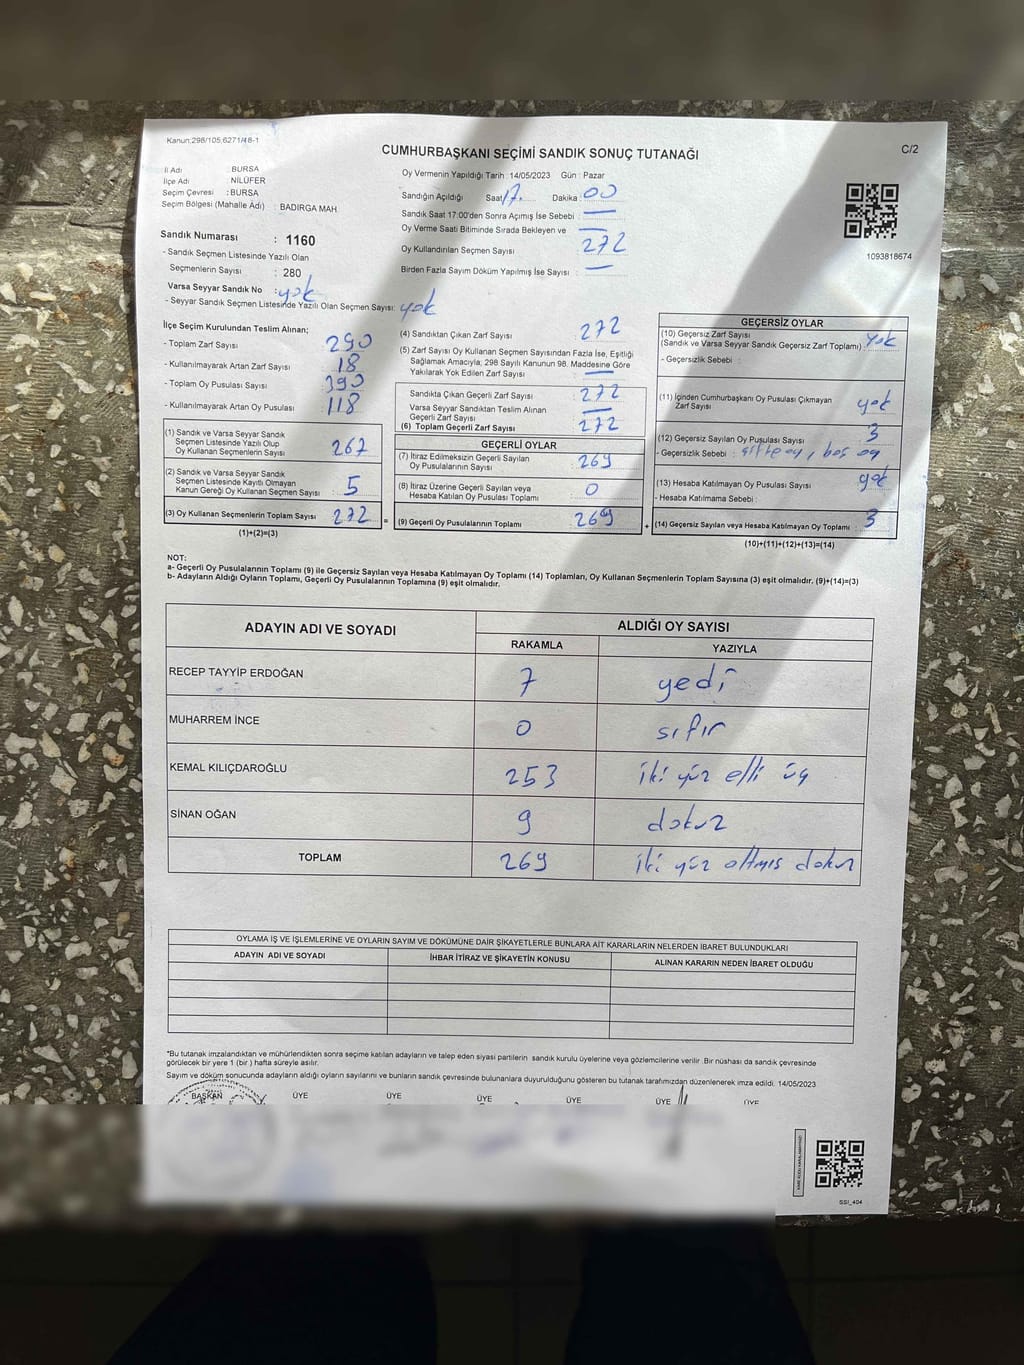 Kanun:298/105,6271/48-1
CUMHURBAŞKANI SEÇİMİ SANDIK SONUÇ TUTANAĞI
C/2
İl Adı : BURSA
İlçe Adı : NİLÜFER
Seçim Çevresi : BURSA
Seçim Bölgesi (Mahalle Adı) : BADIRGA MAH.
Oy Vermenin Yapıldığı Tarih :14/05/2023 Gün : Pazar
Sandığın Açıldığı Saat 17. Dakika : 00
Sandık Saat 17:00'den Sonra Açımış İse Sebebi : —
Oy Verme Saati Bitiminde Sırada Bekleyen ve —
Oy Kullandırılan Seçmen Sayısı 272
Birden Fazla Sayım Döküm Yapılmış İse Sayısı : —
1093818674
Sandık Numarası : 1160
- Sandık Seçmen Listesinde Yazılı Olan
Seçmenlerin Sayısı : 280
Varsa Seyyar Sandık No : yok
- Seyyar Sandık Seçmen Listesinde Yazılı Olan Seçmen Sayısı: yok
İlçe Seçim Kurulundan Teslim Alınan;
- Toplam Zarf Sayısı : 290
- Kullanılmayarak Artan Zarf Sayısı : 18
- Toplam Oy Pusulası Sayısı : 390
- Kullanılmayarak Artan Oy Pusulası : 118
(1) Sandık ve Varsa Seyyar Sandık
Seçmen Listesinde Yazılı Olup
Oy Kullanan Seçmenlerin Sayısı : 267
(2) Sandık ve Varsa Seyyar Sandık
Seçmen Listesinde Kayıtlı Olmayan
Kanun Gereği Oy Kullanan Seçmen Sayısı : 5
(3) Oy Kullanan Seçmenlerin Toplam Sayısı : 272
(1)+(2)=(3)
=
(4) Sandıktan Çıkan Zarf Sayısı : 272
(5) Zarf Sayısı Oy Kullanan Seçmen Sayısından Fazla İse, Eşitliği
Sağlamak Amacıyla; 298 Sayılı Kanunun 98. Maddesine Göre
Yakılarak Yok Edilen Zarf Sayısı : —
Sandıkta Çıkan Geçerli Zarf Sayısı : 272
Varsa Seyyar Sandıktan Teslim Alınan
Geçerli Zarf Sayısı : —
(6) Toplam Geçerli Zarf Sayısı : 272
GEÇERLİ OYLAR
(7) İtiraz Edilmeksizin Geçerli Sayılan
Oy Pusulalarının Sayısı : 269
(8) İtiraz Üzerine Geçerli Sayılan veya
Hesaba Katılan Oy Pusulası Toplamı : 0
(9) Geçerli Oy Pusulalarının Toplamı : 269
+
GEÇERSİZ OYLAR
(10) Geçersiz Zarf Sayısı
(Sandık ve Varsa Seyyar Sandık Geçersiz Zarf Toplamı) : yok
- Geçersizlik Sebebi :
(11) İçinden Cumhurbaşkanı Oy Pusulası Çıkmayan
Zarf Sayısı : yok
(12) Geçersiz Sayılan Oy Pusulası Sayısı : 3
- Geçersizlik Sebebi : çift oy, boş oy
(13) Hesaba Katılmayan Oy Pusulası Sayısı : yok
- Hesaba Katılmama Sebebi :
(14) Geçersiz Sayılan veya Hesaba Katılmayan Oy Toplamı : 3
(10)+(11)+(12)+(13)=(14)
NOT:
a- Geçerli Oy Pusulalarının Toplamı (9) ile Geçersiz Sayılan veya Hesaba Katılmayan Oy Toplamı (14) Toplamları, Oy Kullanan Seçmenlerin Toplam Sayısına (3) eşit olmalıdır. (9)+(14)=(3)
b- Adayların Aldığı Oyların Toplamı, Geçerli Oy Pusulalarının Toplamına (9) eşit olmalıdır.
ADAYIN ADI VE SOYADI ALDIĞI OY SAYISI
RAKAMLA YAZIYLA
RECEP TAYYİP ERDOĞAN 7 yedi
MUHARREM İNCE 0 sıfır
KEMAL KILIÇDAROĞLU 253 iki yüz elli üç
SİNAN OĞAN 9 dokuz
TOPLAM 269 iki yüz altmış dokuz
OYLAMA İŞ VE İŞLEMLERİNE VE OYLARIN SAYIM VE DÖKÜMÜNE DAİR ŞİKAYETLERLE BUNLARA AİT KARARLARIN NELERDEN İBARET BULUNDUKLARI
ADAYIN ADI VE SOYADI İHBAR İTİRAZ VE ŞİKAYETİN KONUSU ALINAN KARARIN NEDEN İBARET OLDUĞU
*Bu tutanak imzalandıktan ve mühürlendikten sonra seçime katılan adayların ve talep eden siyasi partilerin sandık kurulu üyelerine veya gözlemcilerine verilir. Bir nüshası da sandık çevresinde
görülecek bir yere 1 (bir) hafta süreyle asılır.
Sayım ve döküm sonucunda adayların aldığı oyların sayılarını ve bunların sandık çevresinde bulunanlara duyurulduğunu gösteren bu tutanak tarafımızdan düzenlenerek imza edildi. 14/05/2023
BAŞKAN ÜYE ÜYE ÜYE ÜYE ÜYE ÜYE
SSI_404